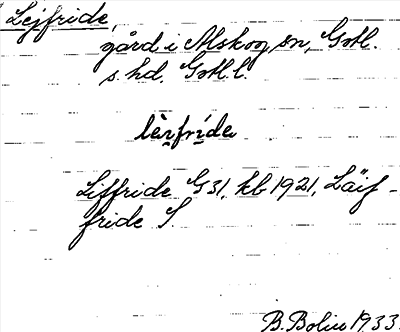 Lejfride,
gård i Alskog sn, Gotl.
s. hd, Gotl. l.
lèi̯frìde
Liffride G31, kb 1921, Läif-
fride S.
B. Bolin 1933.